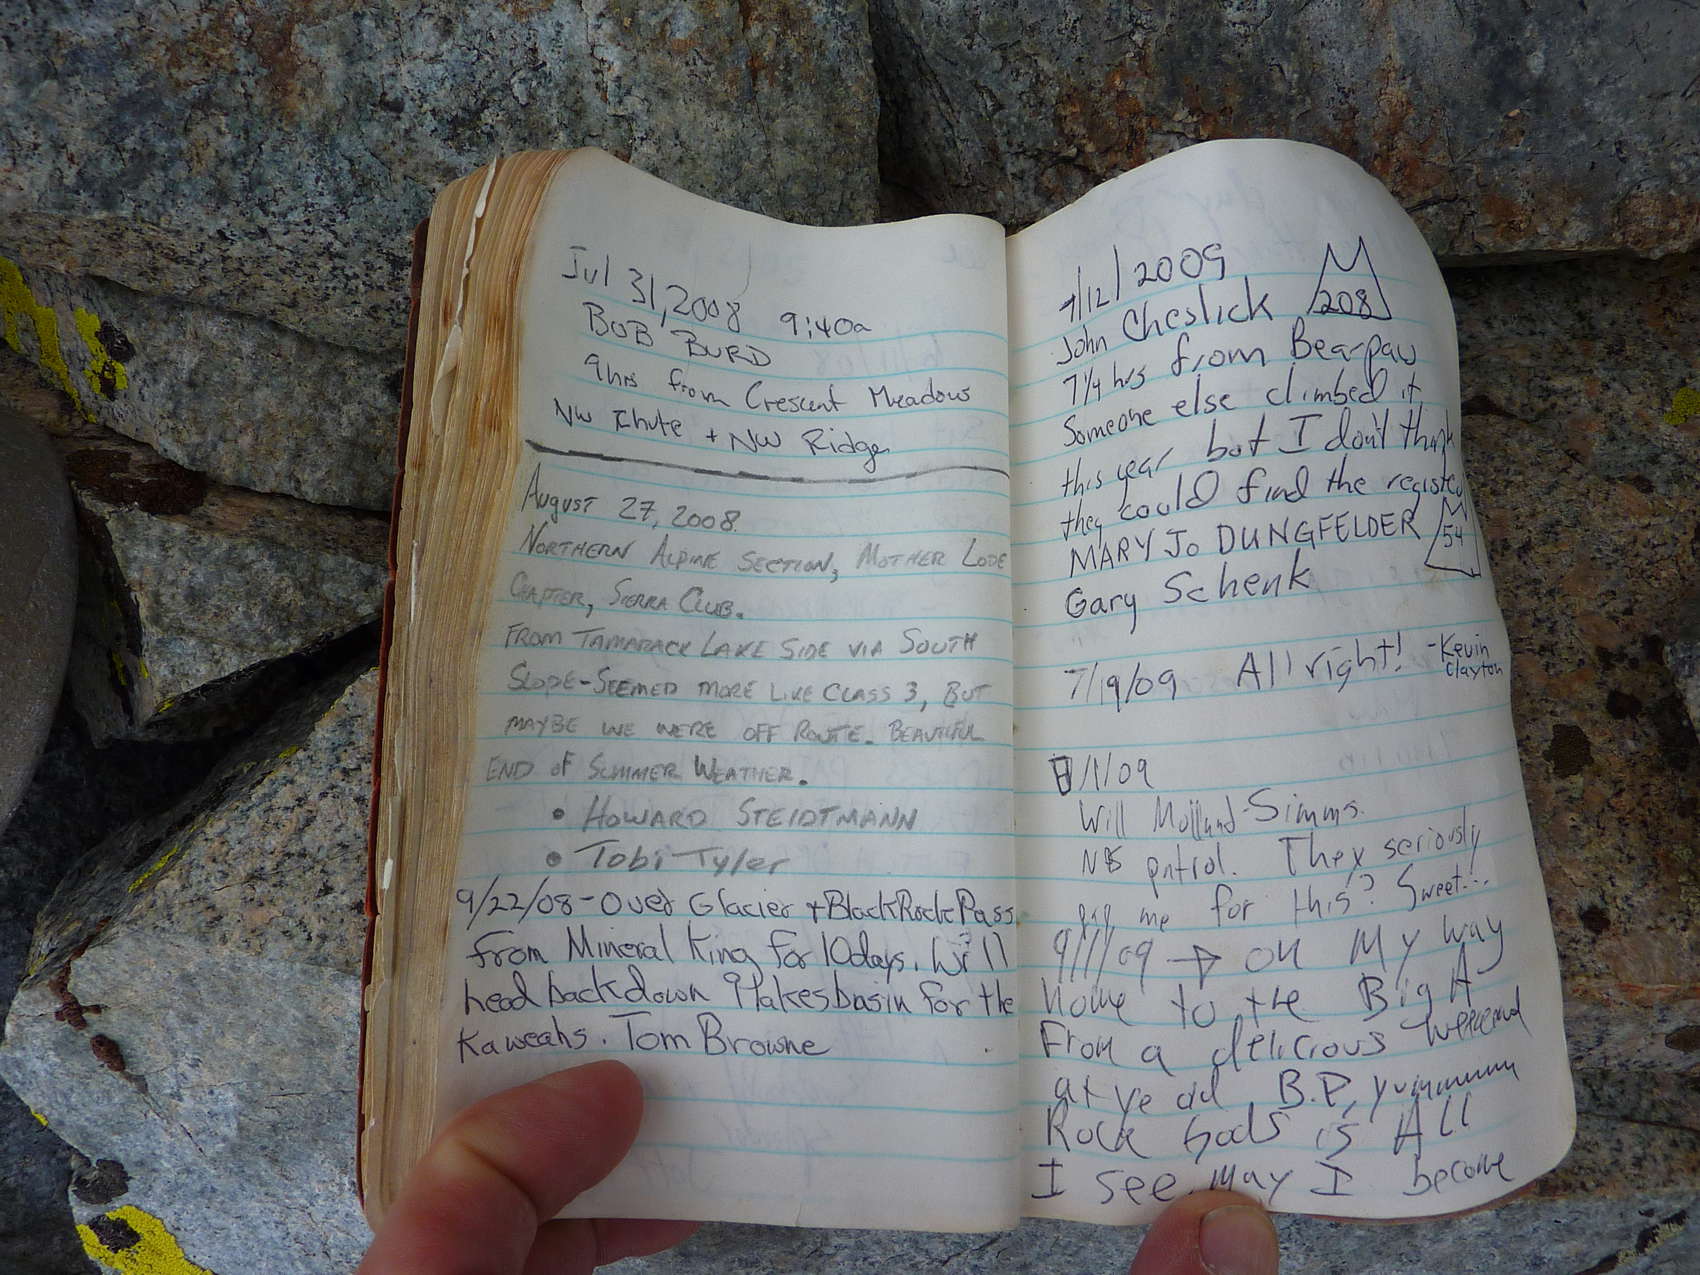 Jul 31, 2008 9:40a
BOB BURD
9hrs from Crescent Meadows
NW Chute + NW Ridge
August 27, 2008.
NORTHERN ALPINE SECTION, MOTHER LODE
CHAPTER, SIERRA CLUB.
FROM TAMARACK LAKE SIDE VIA SOUTH
SLOPE-SEEMED MORE LIKE CLASS 3, BUT
MAYBE WE WERE OFF ROUTE. BEAUTIFUL
END OF SUMMER WEATHER.
• HOWARD STEIDTMANN
• Tobi Tyler
9/22/08-Over Glacier + BlackRock Pass
from Mineral King for 10days. Will
head back down 9 lakes basin for the
Kaweahs. Tom Browne
7/12/2009
John Cheslick 208
7 1/4 hrs from Bearpaw
Someone else climbed it
this year but I don't think
they could find the register
MARY JO DUNGFELDER 54
Gary Schenk
7/19/09 All right! -Kevin
Clayton
8/1/09
Will Simms.
NPS patrol. They seriously
pay me for this? Sweet...
9/1/09 → on My way
Home to the Big A
From a delicious weekend
at ye old B.P. yummmm
Rock Gods is All
I see. May I become